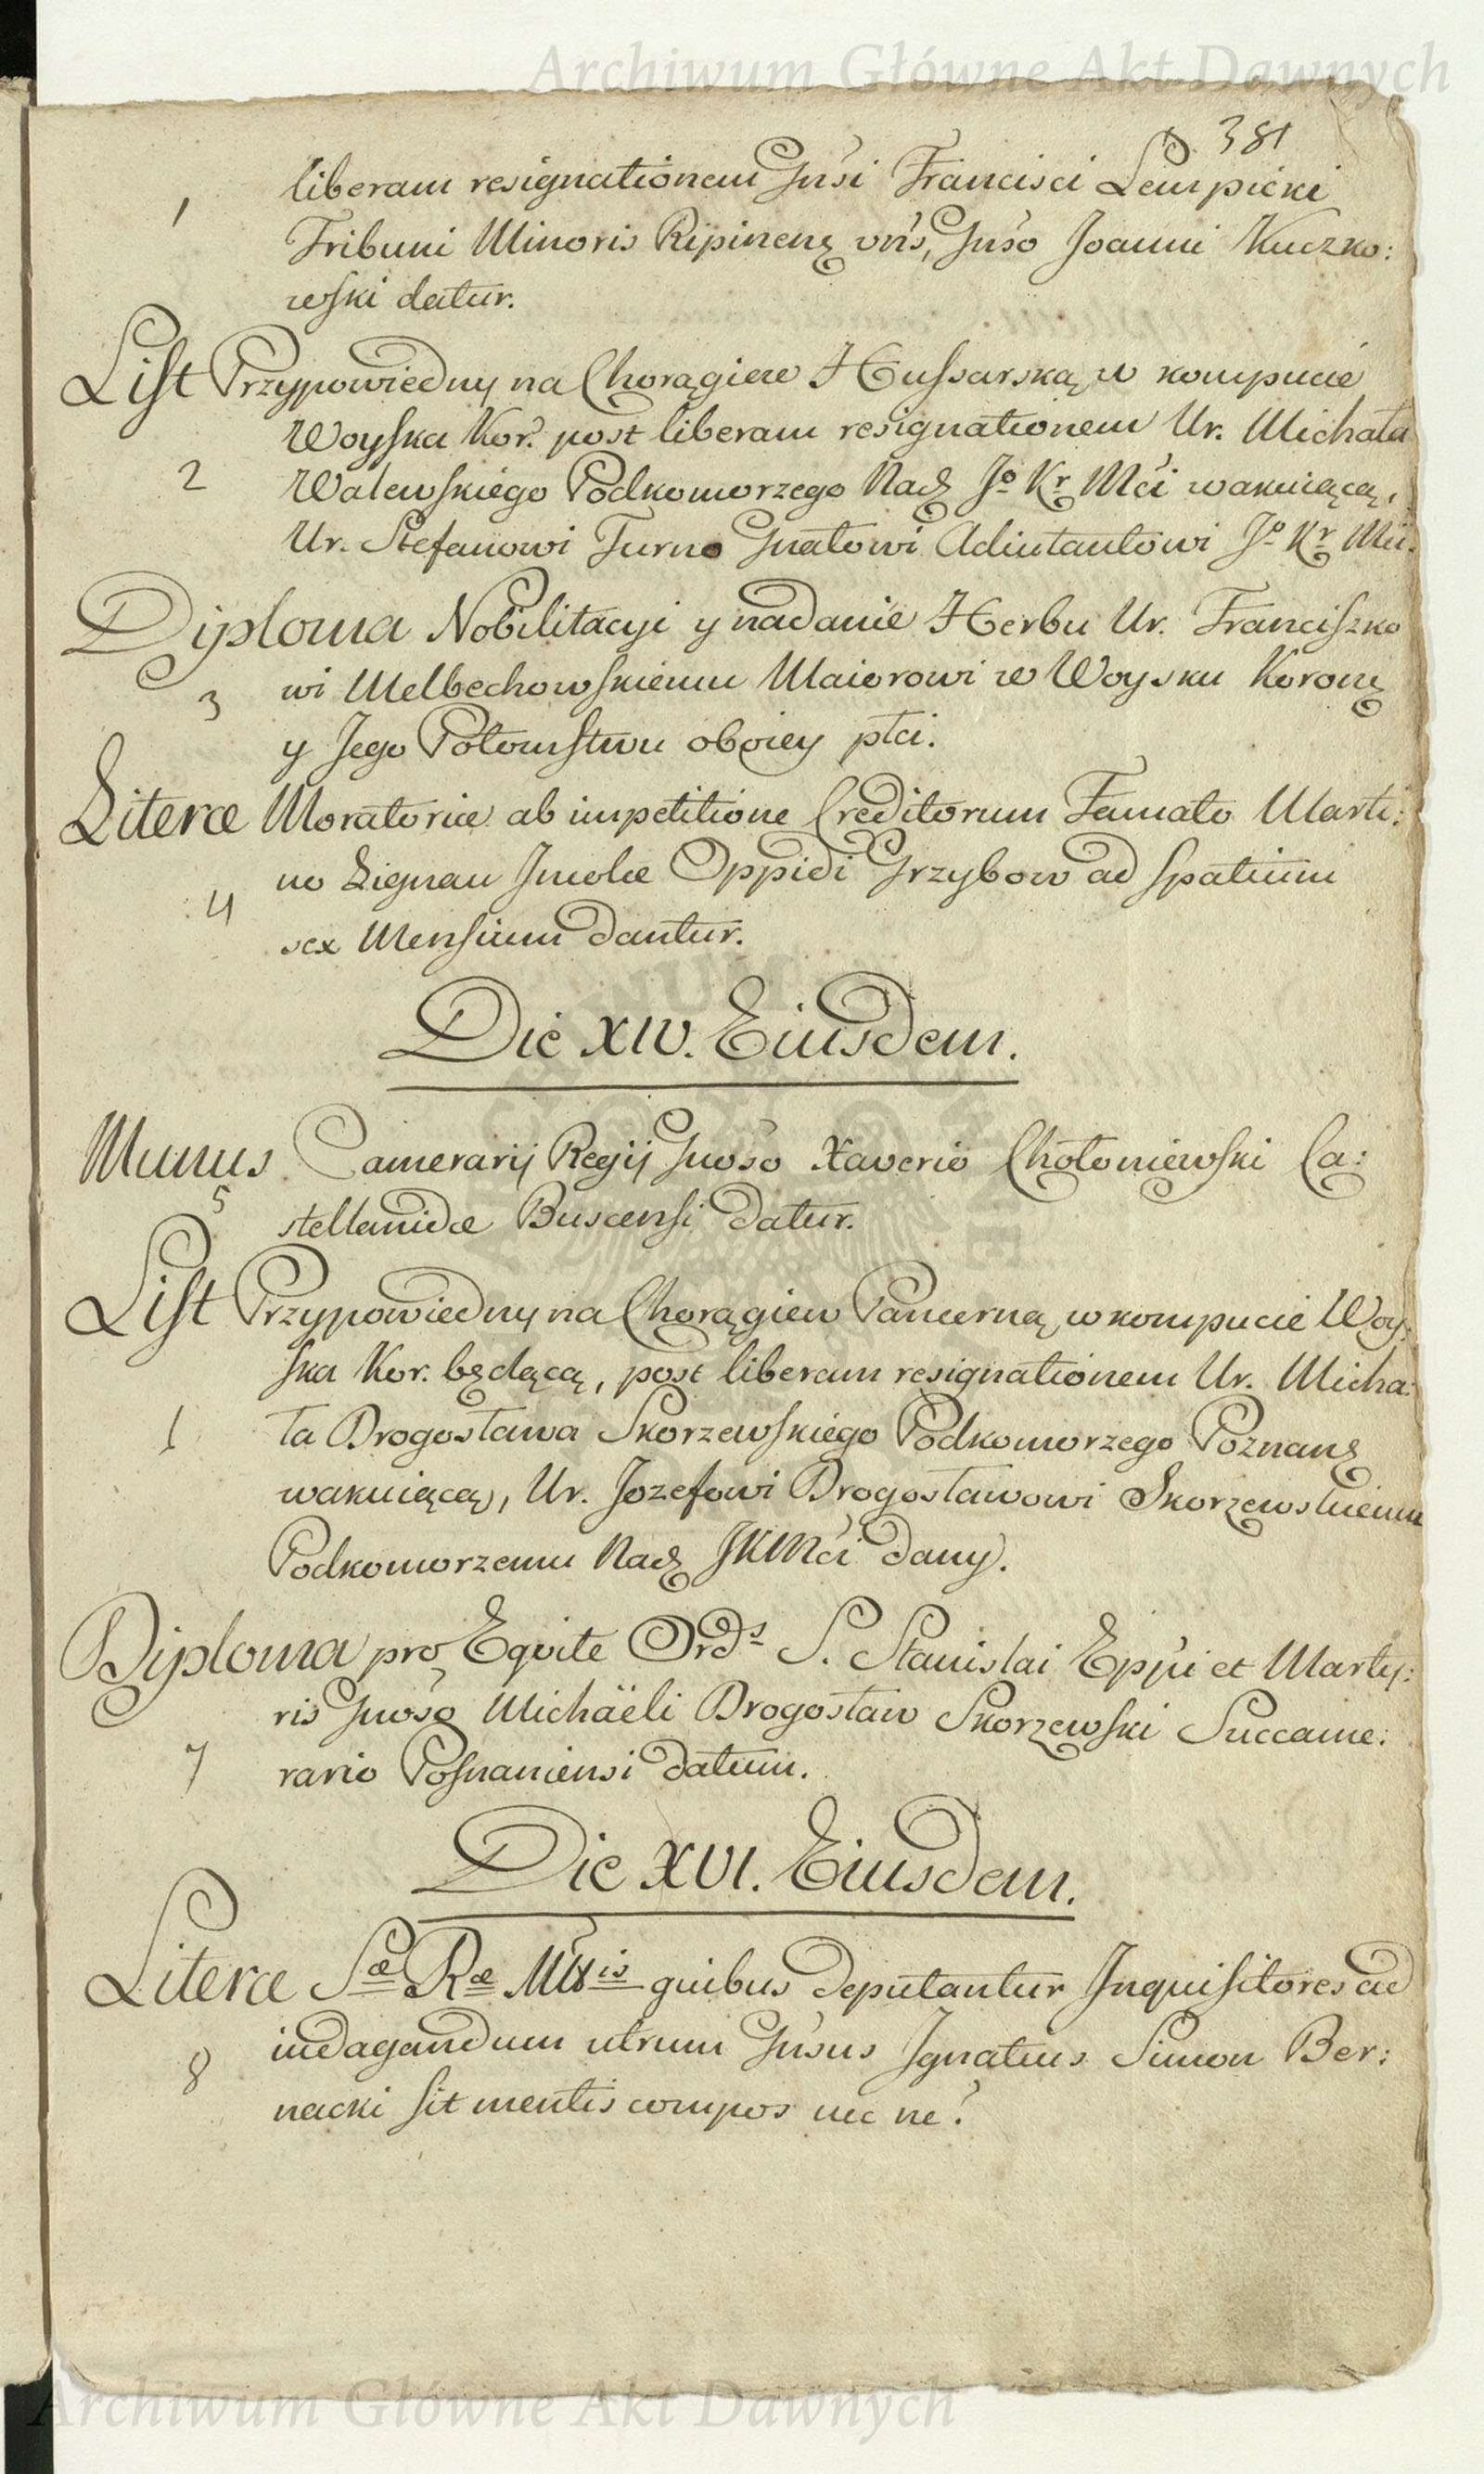 Archiwum Główne Akt Dawnych
381
1 liberam resignationem Gnsi Francisci Lempicki
Tribuni Minoris Ripinenę vńs, Gnso Joanni Kuczko:
wski datur.
List Przypowiedny na Chorągiew Hussarską w kompucie
Woyska Kor. post liberam resignationem Ur. Michała
2 Walewskiego Podkomorzego Nadę Jº Kr Mći wakuiącą,
Ur. Stefanowi Turno Gnałowi Adiutantowi Jº Kr Mći.
Diploma Nobilitacyi y nadanie Herbu Ur. Franciszko
3 wi Melbechowskiemu Maiorowi w Woysku Koronę
y Jego Potomstwu oboiey płci.
Literæ Moratoriæ ab impetitione Creditorum Famato Marti:
4 no Lignau Incolæ Oppidi Grzybow ad spatium
sex Mensium dantur.
Die XIV. Eiusdem.
Munus Camerarij Regij Gnoso Xaverio Chołoniewski Ca:
5 stellanidæ Buscensi datur.
List Przypowiedny na Chorągiew Pancerną, w kompucie Woy:
ska Kor. będącą, post liberam resignationem Ur. Micha:
ła Drogosława Skorzewskiego Podkomorzego Poznanę
wakuiącą, Ur. Jozefowi Drogosławowi Skorzewskiemu
Podkomorzemu Nadę JKMći dany.
Diploma pro Equite Ords S. Stanislai Eppi et Marty:
ris Gnoso Michaëli Drogosław Skorzewski Succame:
7 rario Posnaniensi datum.
Die XVI. Eiusdem.
Literæ Sæ Ræ Mttis quibus deputantur Inquisitores ad
8 indagandum utrum Gnsus Ignatius Simon Ber:
nacki sit mentis compos nec ne?
Archiwum Główne Akt Dawnych